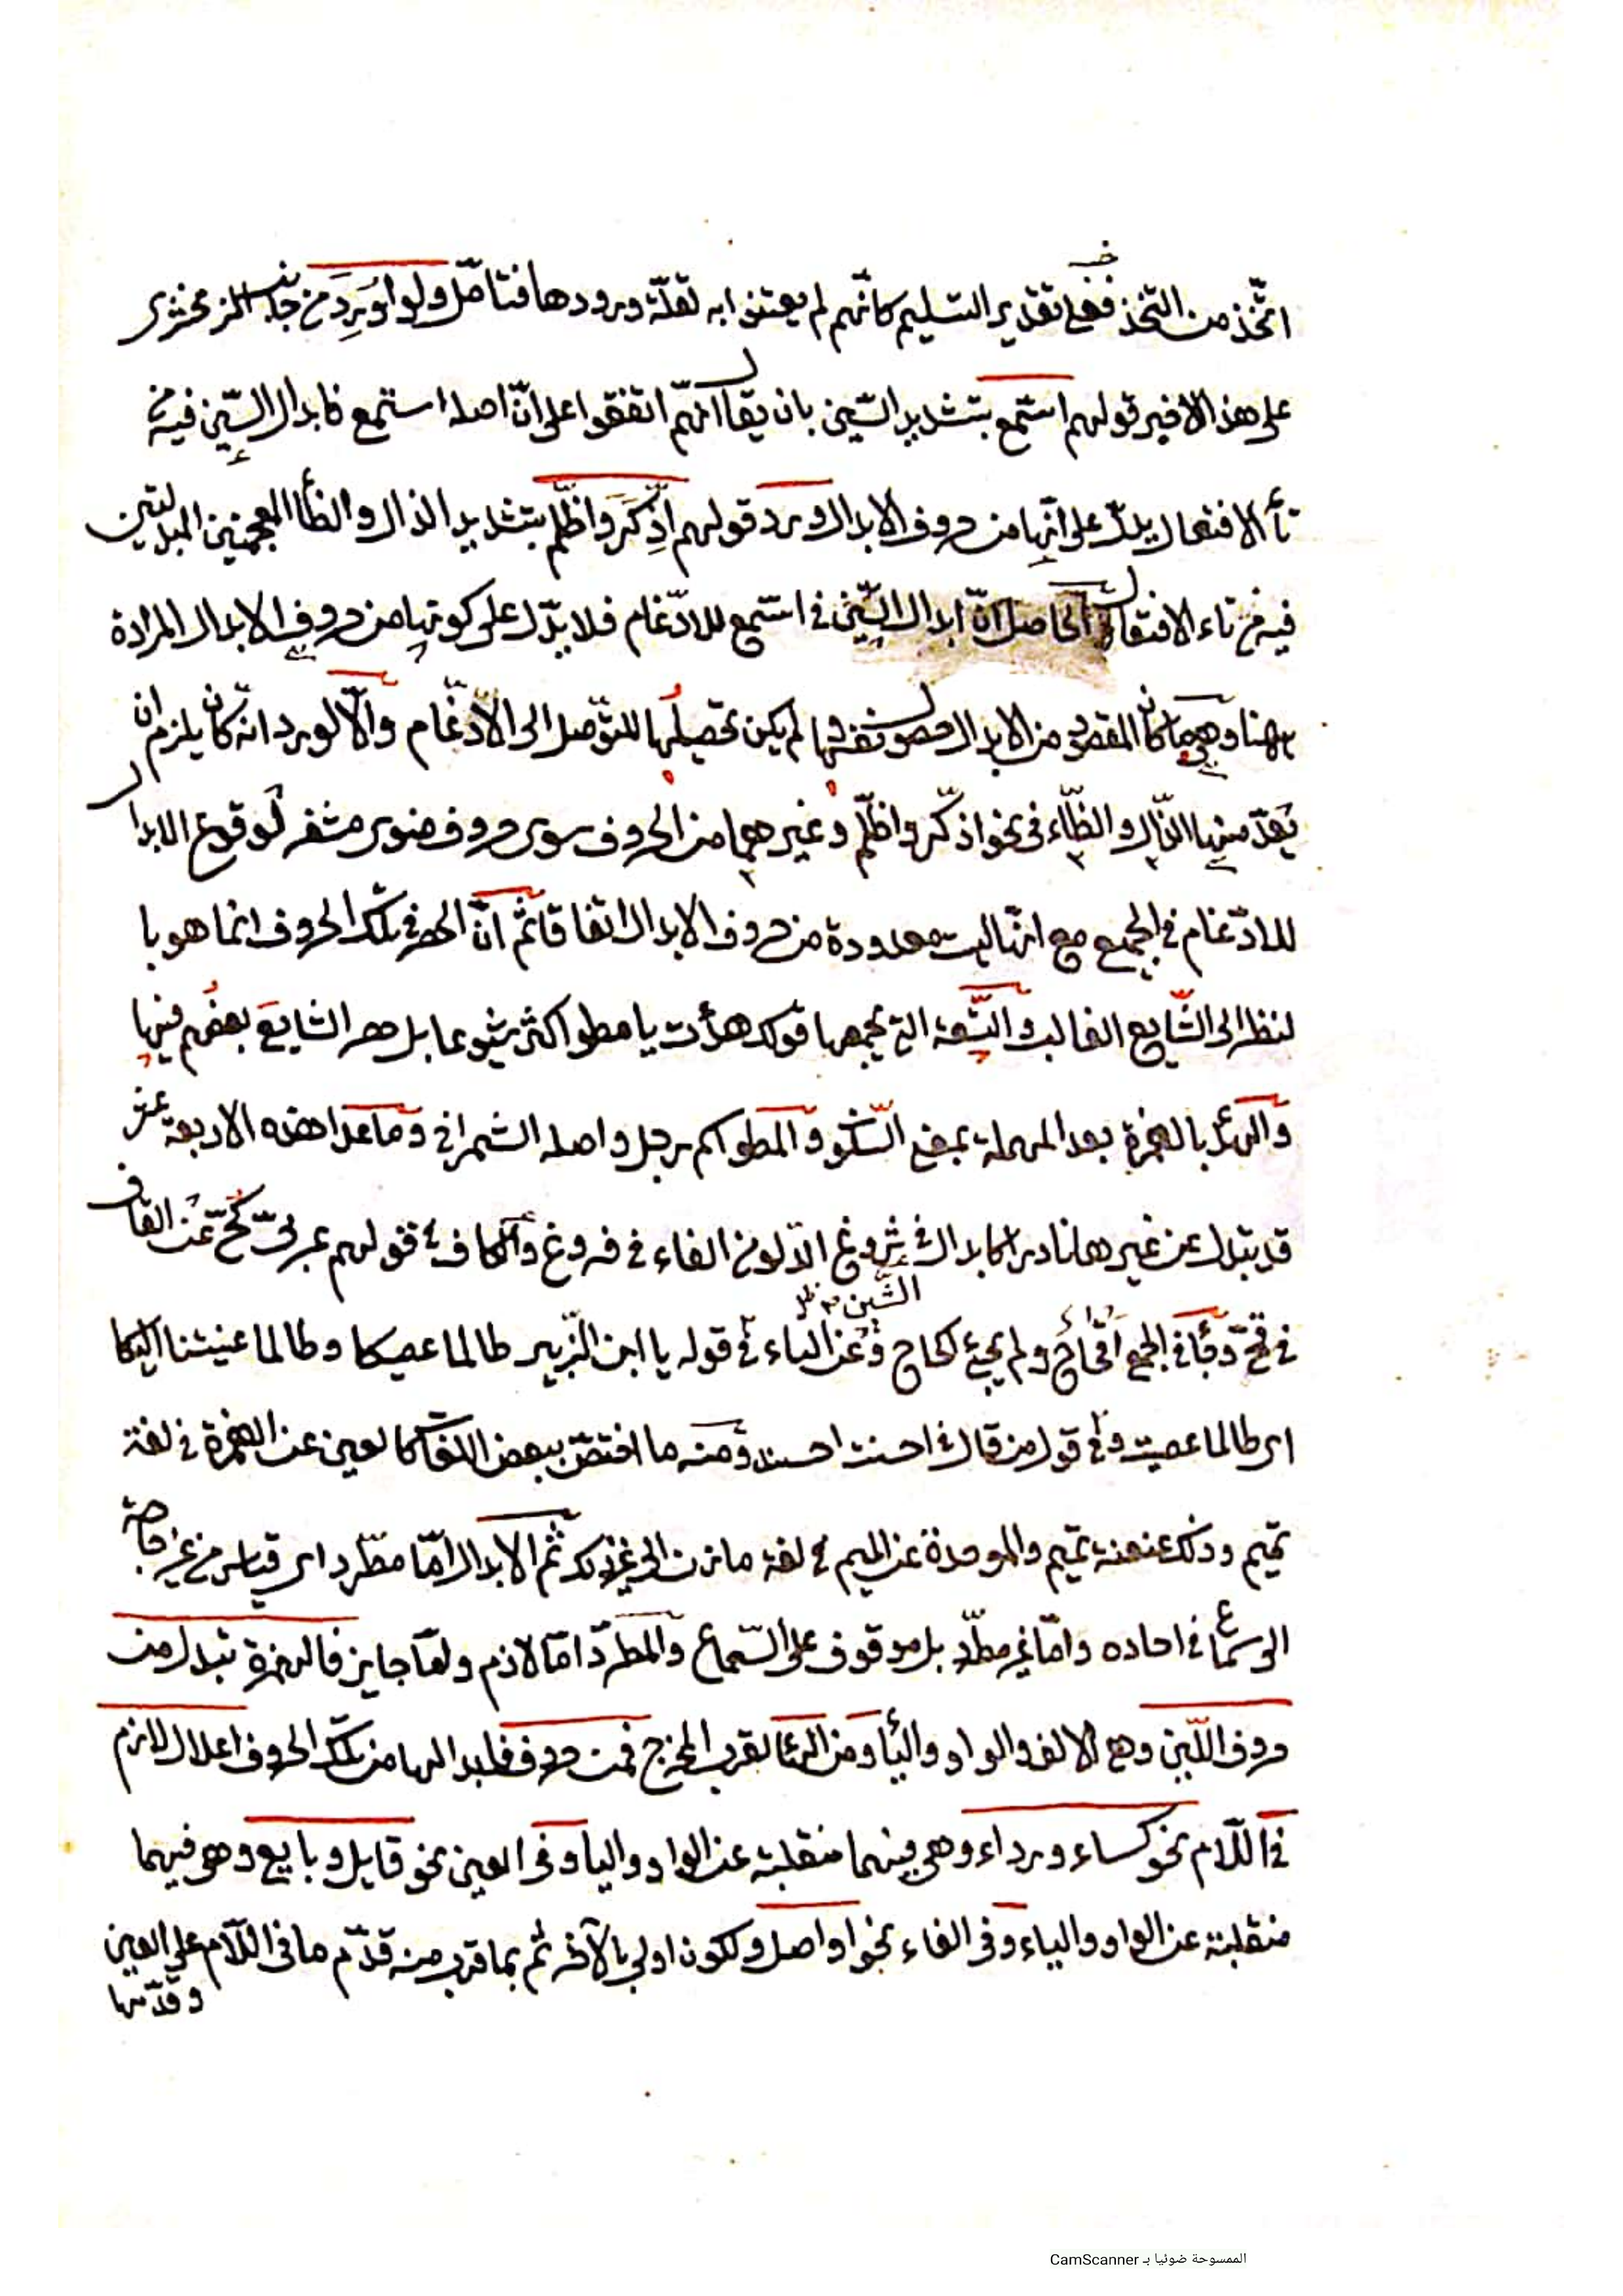 اتّخذ من التخذ فعلى تقدير التسليم كانّهم لم يعتنوا به لقلّة ورودها فتامّل ولو اُورِدَ من جانب الزمخشرى
على هذا الاخير قولهم اسّمع بتشديد السّين بان يقال انّهم اتفقوا على انّ اصله استمع فابدال السّين فيه من
تأ الافتعال يدلّ على انّها من حروف الابدال ورد قولهم اذّكَرَ واظّلم بتشديد الذال والظأ المعجمتين المبدلتين
فيه من تاء الافتعال والحاصل انّ ابدال السّين فى اسّمع للادّغام فلا يدّل على كونها من حروف الابدال المرادة
ههنا وهى ما كان المقصود من الابدال حصول نفسها لم يكن تحصيلُها للتوّصل الى الادّغام والّا لورد انّه كان يلزم ان
يَعدّ منها الذّال والظّاء فى نحو اذّكّر واظّلم وغيرهما من الحروف سوى حروف ضوى مشفر لوقوع الابدال
للادّغام فى الجميع مع انّها ليست معدودة من حروف الابدال اتفاقا ثمّ انّ الحصر فى تلك الحروف انما هو با
لنظر الى الشّايع الغالب والتّسعة التى يجمعها قولك هدأت يا مطو اكثر شيوعا بل حصر الشايعَ بعضُهم فيها
والهدأ بالهمزة بعد المهملة بمعنى السّكون والمطو اسم رجل واصله الشمراخ وما عدا هذه الاربعة عشر
قد يبدل عن غيرها نادرا كابدال ثروغ الدّلو من الفاء فى فروغ والكاف فى قولهم عربىّ كُحّ عَن القاف
فى قحّ وقَا فى الجمع اَقحاح ولم يجئ اكحاح وعن التاء فى قوله يا ابن الزّبير طالما عصيكا وطالما عنيتنا اليكا
الشّين ظ
اى طالما عصيت وفى قول من قال فى احسنت احسنك ومنه ما اختصّ ببعض اللغات كالعين عن الهمزة فى لغة
تميم وذلك عنعنة تميم والموحدة عن الميم فى لغة مازن الى غير ذلك ثم الابدال امّا مطّرد اى قياس من غير حاجة
الى سماع فى احاده وامّا غير مطّرد بل موقوف على السّماع والمطرّد امّا لازم وامّا جايز فالهمزة تبدل من
حروف اللّين وهى الالف والواو واليأ ومن الهأ لقرب المخرج فمن حروف فابدالها من تلك الحروف اعلال لازم
فى اللّام نحو كساء ورداء وهى فيهما منقلبة عن الواو والياء وفى العين نحو قايل وبايع وهو فيهما
منقلبة عن الواو والياء وفى الفاء نحو اواصل ولكون اولى بالآخر ثم بما قرب منه قدّم ما فى اللّام على العين
وقدّمها
الممسوحة ضوئيا بـ CamScanner